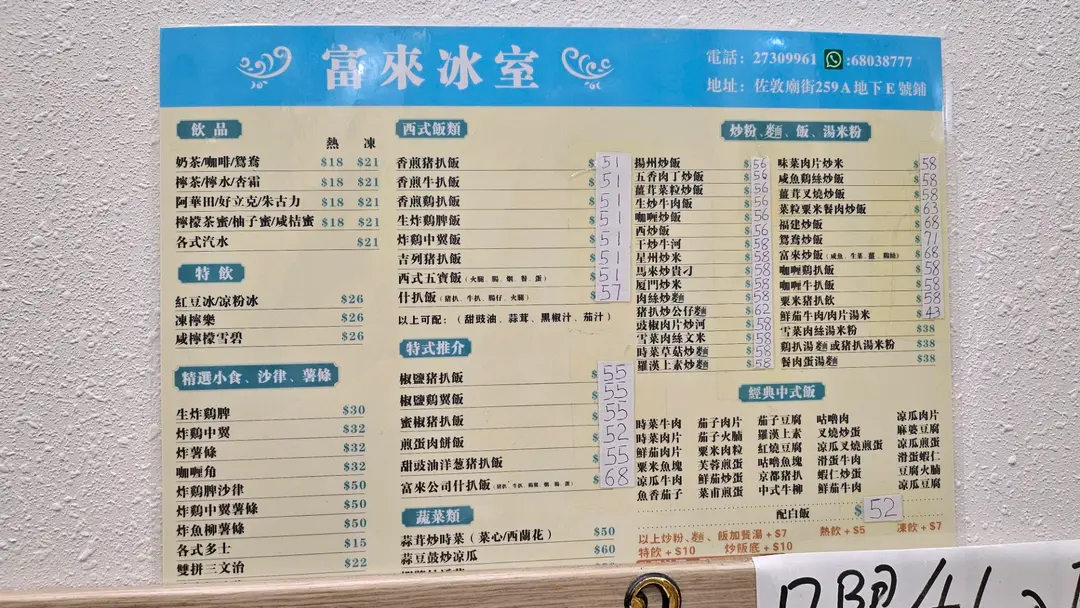 富來冰室
電話：27309961 :68038777
地址：佐敦廟街259A地下E號鋪
飲品
熱 凍
奶茶/咖啡/鴛鴦 $18 $21
檸茶/檸水/杏霜 $18 $21
阿華田/好立克/朱古力 $18 $21
檸檬茶蜜/柚子蜜/咸桔蜜 $18 $21
各式汽水 $21
特飲
紅豆冰/凉粉冰 $26
凍檸樂 $26
咸檸檬雪碧 $26
精選小食、沙律、薯條
生炸鷄髀 $30
炸鷄中翼 $32
炸薯條 $32
咖喱角 $32
炸鷄髀沙律 $50
炸鷄中翼薯條 $50
炸魚柳薯條 $50
各式多士 $15
雙拼三文治 $22
西式飯類
香煎猪扒飯 $51
香煎牛扒飯 $51
香煎鷄扒飯 $51
生炸鷄髀飯 $51
炸鷄中翼飯 $51
吉列猪扒飯 $51
西式五寶飯（火腿 腸 烟 餐 蛋） $51
什扒飯（猪扒、牛扒、腸仔、火腿） $57
以上可配：（甜豉油、蒜茸、黑椒汁、茄汁）
特式推介
椒鹽猪扒飯 55
椒鹽鷄翼飯 55
蜜椒猪扒飯 55
煎蛋肉餅飯 52
甜豉油洋葱猪扒飯 55
富來公司什扒飯 $68
蔬菜類
蒜茸炒時菜（菜心/西蘭花） $50
蒜豆鼓炒凉瓜 $60
炒粉、麵、飯、湯米粉
揚州炒飯 $56
五香肉丁炒飯 $56
薑茸菜粒炒飯 $56
生炒牛肉飯 $56
咖喱炒飯 $56
西炒飯 $56
干炒牛河 $58
星州炒米 $58
馬來炒貴刁 $58
厦門炒米 $58
肉絲炒麵 $58
猪扒炒公仔麵 $62
豉椒肉片炒河 $58
雪菜肉絲炆米 $58
時菜草菇炒麵 $58
羅漢上素炒麵 $58
味菜肉片炒米 $58
咸魚鷄絲炒飯 $58
薑茸叉燒炒飯 $58
菜粒粟米餐肉炒飯 $63
福建炒飯 $68
鴛鴦炒飯 $71
富來炒飯 $68
咖喱鷄扒飯 $58
咖喱牛扒飯 $58
粟米猪扒飲 $58
鮮茄牛肉/肉片湯米 $43
雪菜肉絲湯米粉 $38
鷄扒湯麵或猪扒湯米粉 $38
餐肉蛋湯麵 $38
經典中式飯
時菜牛肉 茄子肉片 茄子豆腐 咕嚕肉 凉瓜肉片
時菜肉片 茄子火腩 羅漢上素 叉燒炒蛋 麻婆豆腐
鮮茄肉片 粟米肉粒 紅燒豆腐 凉瓜叉燒煎蛋 凉瓜煎蛋
粟米魚塊 芙蓉煎蛋 咕嚕魚塊 滑蛋牛肉 滑蛋蝦仁
凉瓜牛肉 鮮茄炒蛋 京都猪扒 蝦仁炒蛋 豆腐火腩
魚香茄子 菜甫煎蛋 中式牛柳 鮮茄牛肉 凉瓜豆腐
配白飯 $52
以上炒粉、麵、飯加餐湯+$7 熱飲+$5 凍飲+$7
特飲+$10 炒飯底+$10